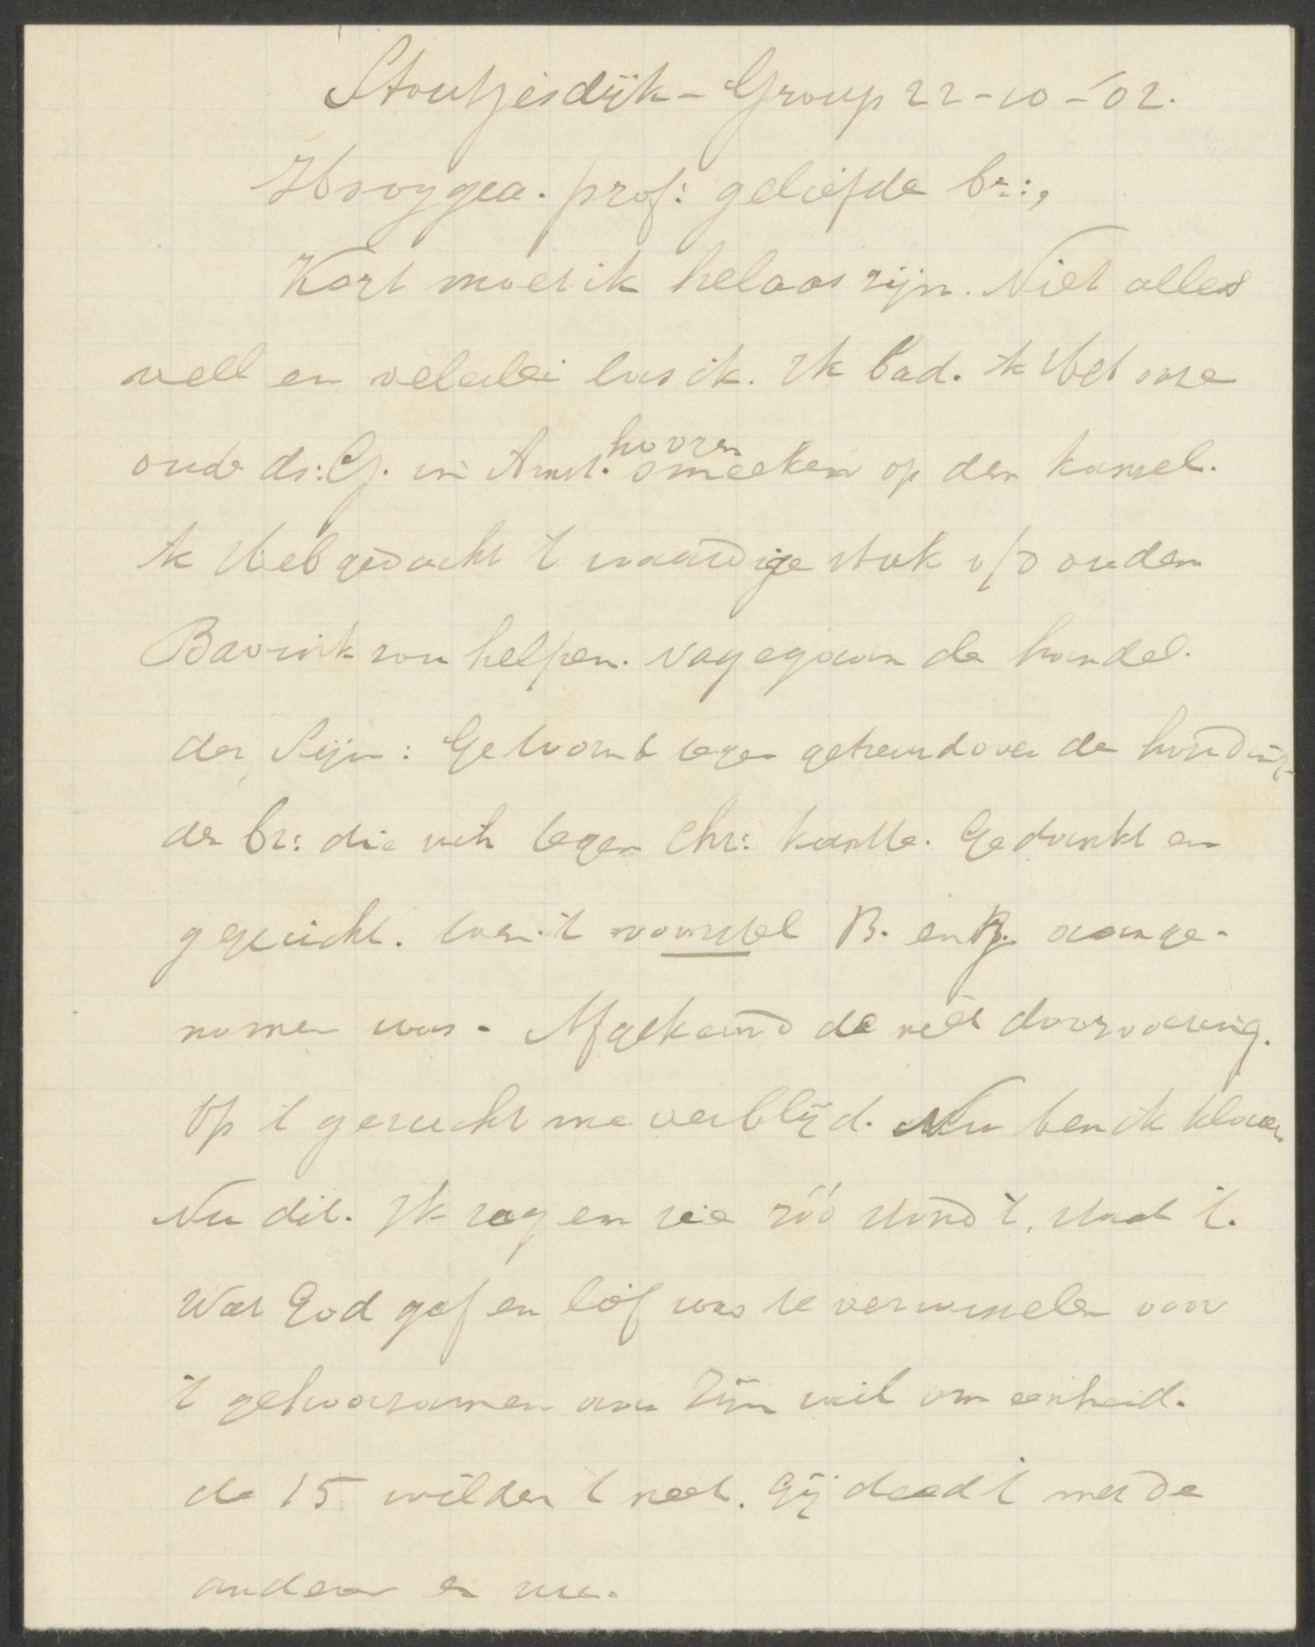 Stoutjesdijk - Group 22-10-'02.
Hooggea. prof: geliefde br:,
Kort moet ik helaas zijn. Niet alles
veel en velerlei las ik. Ik bad. Ik heb onze
oude ds: G. in Amst. hooren smeeken op den kansel.
Ik heb gedacht 't waardige stuk v/d ouden
Bavink zou helpen. nagegaan de handel.
der Sijn: Getoornt tegen getreurd over de houding
der br: die zich tegen Chr: kantte. Gedankt en
gejuicht. toen 't voorstel B. en B. aange-
nomen was. Afgekeurd de niet doorvoering.
Op 't gerucht me verblijd. Nu ben ik klaar
Nu dit. Ik zag en zie zóó stond 't, staat 't.
Wat God gaf en lief was te verwisselen voor
't gehoorzamen aan Zijn wil om eenheid.
de 15 wilden 't niet. Gij deed 't met de
anderen en nu.